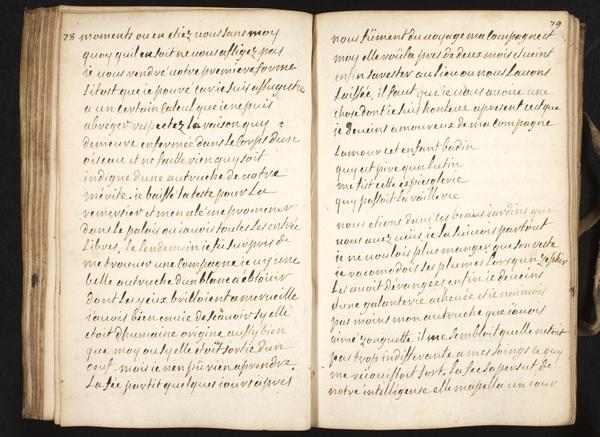 78 moments ou en etiez vous sans moy
quoy quil en soit ne vous afligez pas
ie vous rendre votre premiere forme
sitost que ie pouvé car ie suis assugestie
a un certain calcul que ie ne puis
abreger respectez la raison quy
demeure enfermée dans le corps dune
oiseau et ne faitte rien quy soit
indigne dune autruche de votre
merite ie baissé la teste pour la
remersier et men alé me promener
dans le palais ou iavois toutes les entrée
libres. Le lendemain ie fus surpris de
me trouver une compagne ie vis une
belle autruche dun blanc a eblouir
dont les yeux brilloient a merveille
iavois bien envie de scavoir sy elle
etoit dhumaine origine aussy bien
que moy ou sy elle etoit sortie dun
oeuf. mais ie nen pu rien aprendre
la fée partit quelques iours apres
79
nous fument du voyage ma compagne et
moy elle vola pres de deux mois et vint
enfin sarester au lieu ou nous lavons
laissée. il faut que ie vous avoüe une
chose dont ie suis honteux apresent cest que
ie devins amoureux de ma compagne
lamour cet enfant badin
quy est pire qun lutin
me fit cette espieglerie
quy passoit la raillerie
nous etions dans ces beaux iardins que
vous avez veus ie la suivois partout
ie ne voulois plus manger que son reste
ie racomodois ses plumes lorsqun zephir
les avoit derangées enfin ie devins
dune galanterie achevée et ie naimois
pas moins mon autruche que iavois
aimé ionquette il me sembloit quelle netoit
pas trop indifferante a mes soings ce quy
me reiouissoit fort. la fée sapersut de
notre intelligense elle mapella un iour